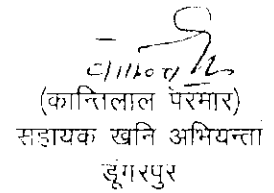 (कान्तिलाल परमार)
सहायक खनि अभियन्ता
डूंगरपुर